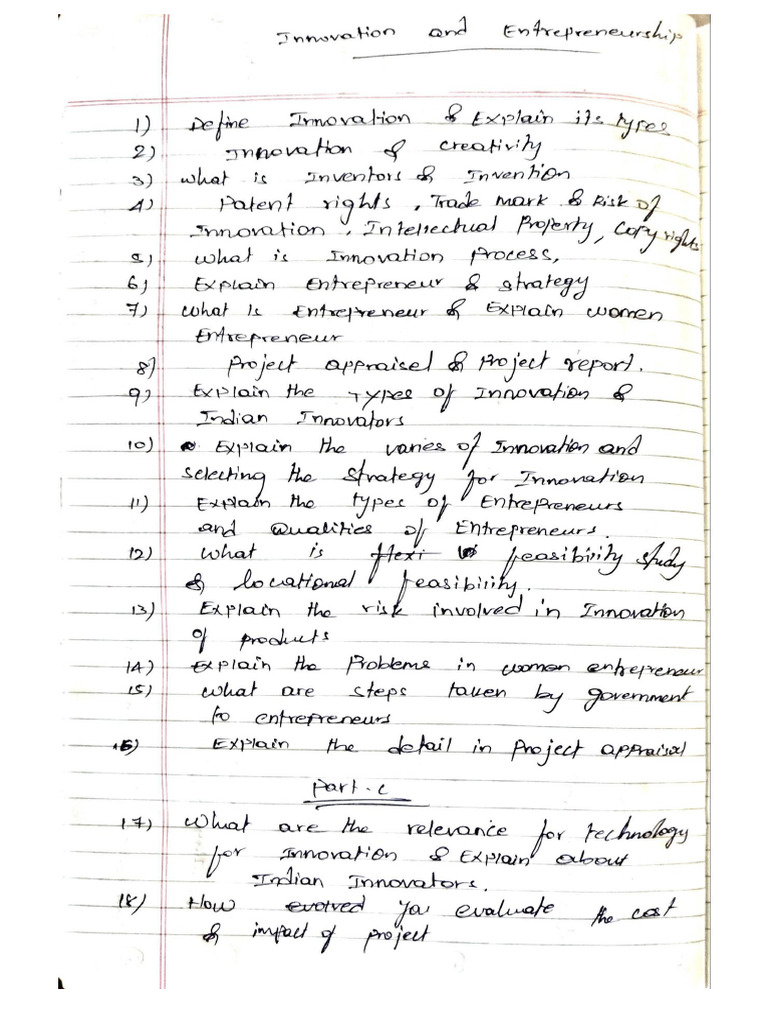 Innovation and Entrepreneurship
1) Define Innovation & Explain its types
2) Innovation & creativity
3) what is Inventors & Invention
4) Patent rights, Trade mark & Risk of
Innovation, Intellectual Property, Copy rights
5) what is Innovation Process,
6) Explain Entrepreneur & strategy
7) what is Entrepreneur & Explain women
Entrepreneur
8) Project appraisel & Project report.
9) Explain the Types of Innovation &
Indian Innovators
10) Explain the varies of Innovation and
selecting the strategy for Innovation
11) Explain the types of Entrepreneurs
and Qualities of Entrepreneurs.
12) what is flexi feasibility study
& locational feasibility.
13) Explain the risk involved in Innovation
of products
14) Explain the Problems in women entrepreneur
15) what are steps taken by government
to entrepreneurs
16) Explain the detail in Project appraisal
Part-c
17) what are the relevance for technology
for Innovation & Explain about
Indian Innovators.
18) How evolved you evaluate the cost
& impact of project